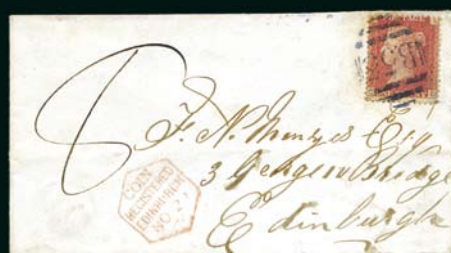 8
F. N. Menzies Esqr
3 George IV Bridge
Edinburgh
COIN
REGISTERED
EDINBURGH
NO 21